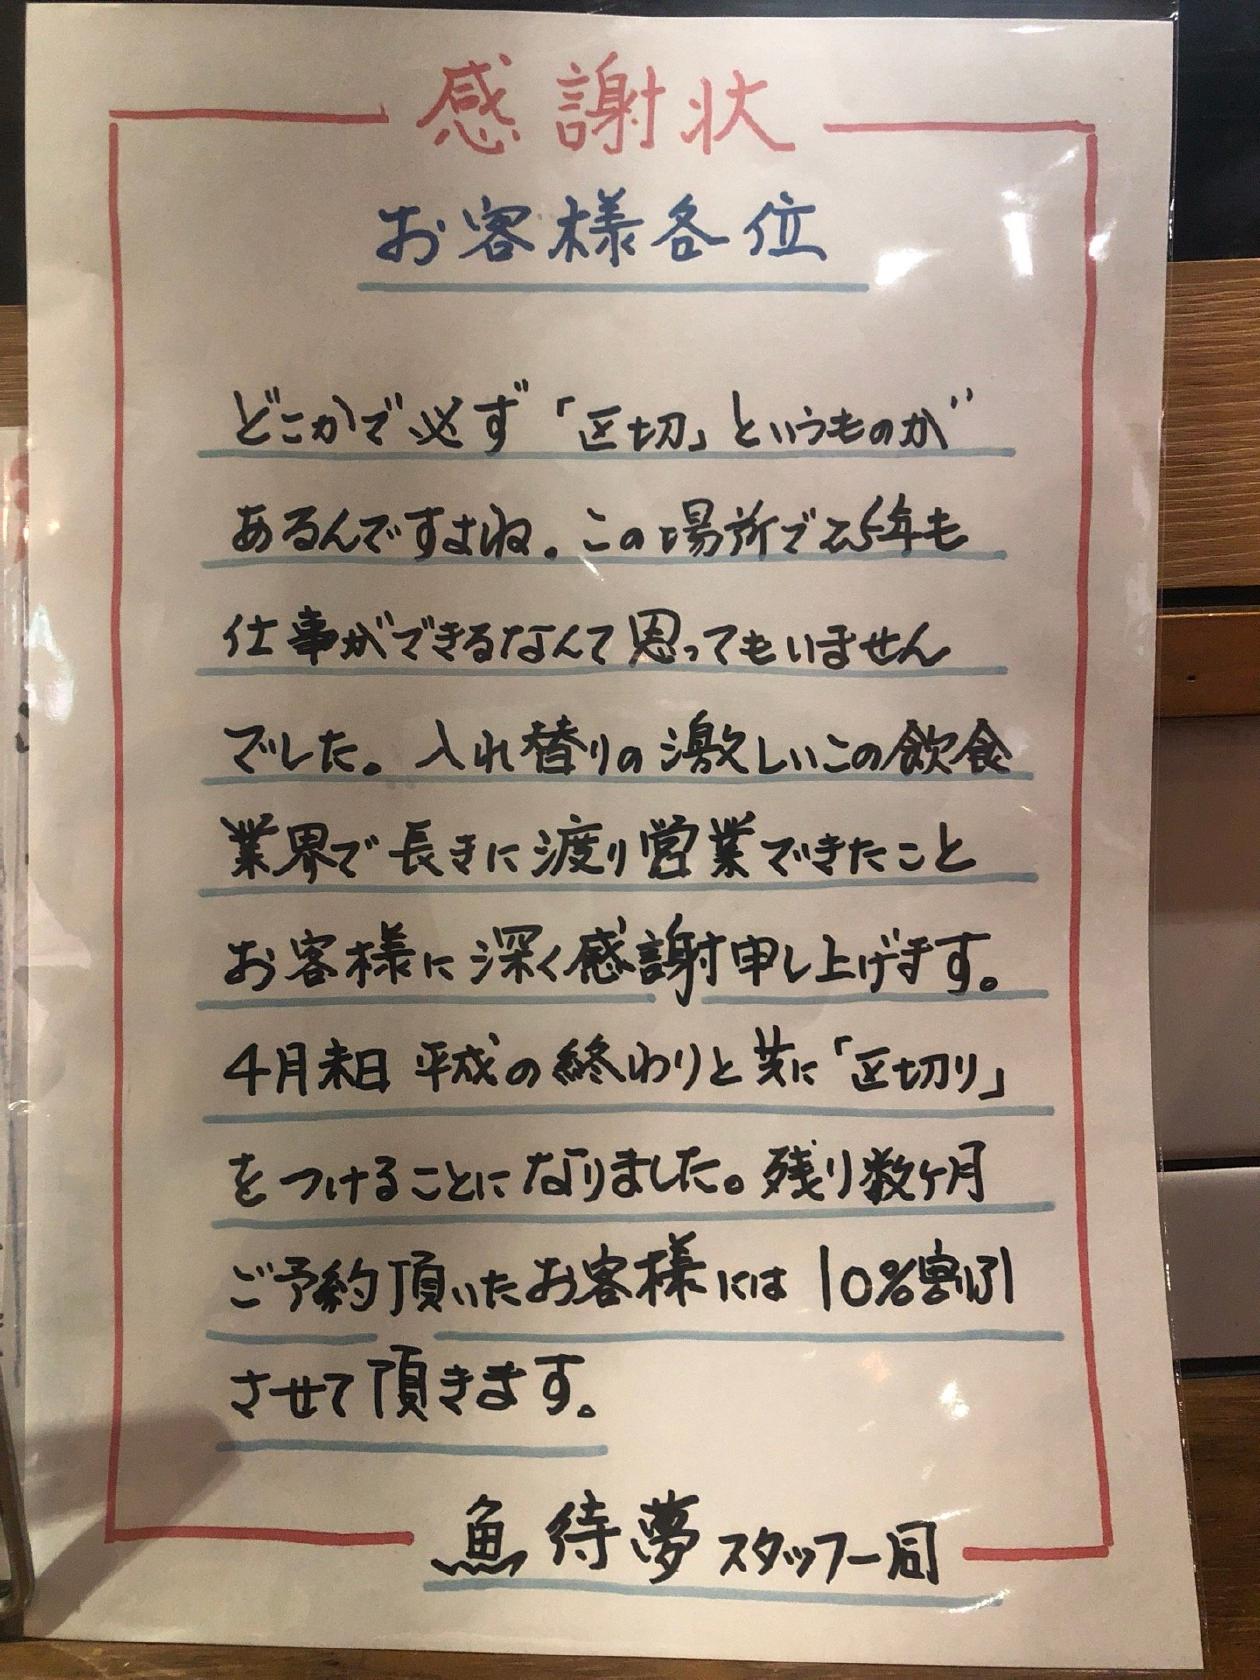 感謝状
お客様各位
どこかで必ず「区切」というものが
あるんですよね。この場所で25年も
仕事ができるなんて思ってもいません
でした。入れ替りの激しいこの飲食
業界で長きに渡り営業できたこと
お客様に深く感謝申し上げます。
4月末日 平成の終わりと共に「区切り」
をつけることになりました。残り数ヶ月
ご予約頂いたお客様には10%割引
させて頂きます。
魚待夢スタッフ一同